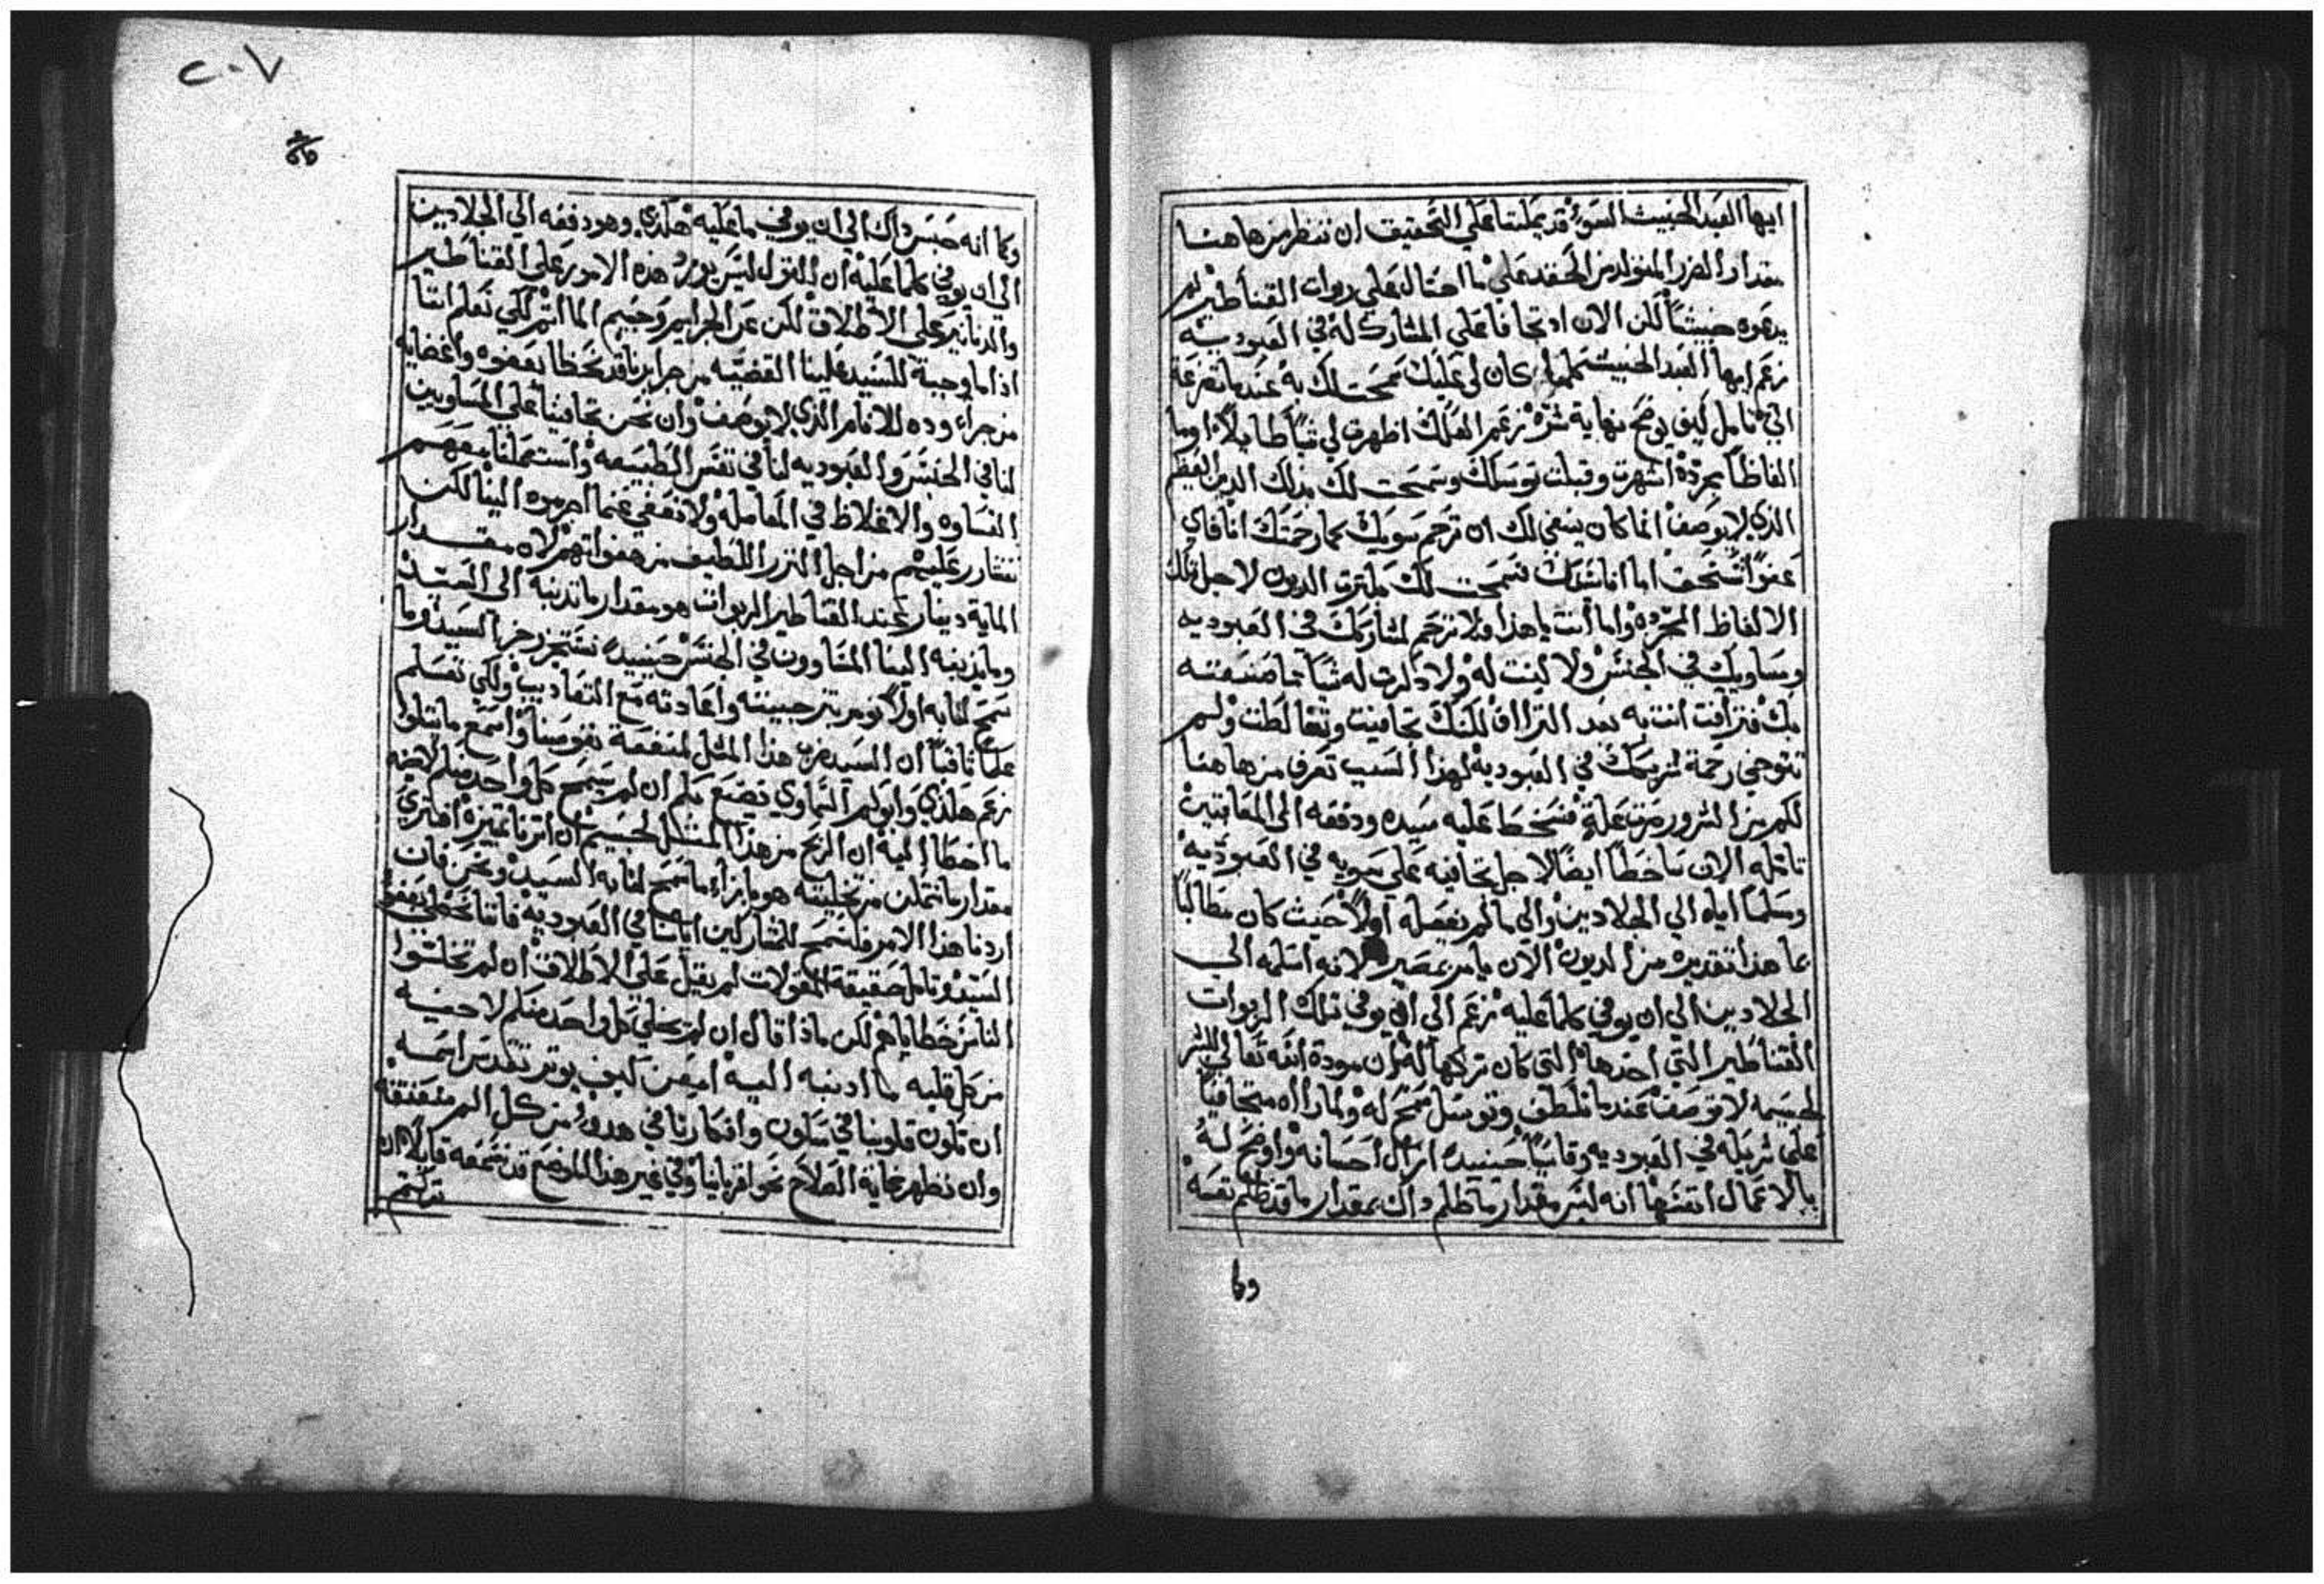 ايها العبد الخبيث السوء قد يمكننا على التحقيق ان ننظر من هاهنا
مقدار الضرر المتولد من الحقد على ما احتال على ربوات القناطير لم
يدعوه خبيثاً لكن الان اذ تجافا على المشارك له في العبوديه
زعم ايها العبد الخبيث كلما كان لي عليك سمحت لك به عندما تضرعت
الي تامل كيف يوضح نهاية شره زعم لعلك اظهرت لي شياً طايلاً او ما
الفاظاً مجرده اشهرت وقبلت توسلك وسمحت لك بذلك الدين العظيم
الذي لا يوصف انما كان ينبغي لك ان ترحم سويك كما رحمتك انا فاي
عفواً تستحق اما انا سيدك فسمحت لك بكثرت الديون لاجل تلك
الالفاظ المجرده واما انت يا هذا فلا ترحم لمشاركك في العبوديه
ومساويك في الجنس ولا لينت له ولا ذكرت له شياً مما صنعته
بك فترافت انت به بعد الترااف لكنك تجافيت وتغالظت ولم
تتوخي رحمة شريكك في العبوديه لهذا السبب تعرف من هاهنا
لكم من الشرور صرت علة فسخط عليه سيده ودفعه الى المعاقبين
تامله الان ساخطاً ايضاً لاجل تجافيه على سويه في العبوديه
ومسلماً اياه الي الجلادين والى ما لم يفعله اولاً حيث كان مطالباً
عما هذا تقديره من الديون الان يامر بمصيره لانه اسلمه الي
الجلادين الي ان يوفي كلما عليه زعم الي ان يوفي تلك الربوات
القناطير التي اخذها التي كان تركها له ان مودة الله تعالي للبشر
لجسيمه لا توصف عندما تلطف وتوسل سمح له ولما رااه متجافياً
على شريكه في العبوديه وقاسياً حينيذ ازال احسانه واوضح له
بالاعمال انفسها انه ليس مقدار ما ظلم ذاك بمقدار ما قد ظلم نفسه
وكا
٢٠٧
وكما انه حبس ذاك الي ان يوفي ما عليه هكذي وهو دفعه الي الجلادين
الي ان يوفي كلما عليه ان القول ليس يورد هذه الامور على القناطير
والدنانير على الاطلاق لكن عن الجرايم وجسيم الماا ثم لكي نعلم اننا
اذا ما وجبة للسيد علينا القضيه من جرايرنا قد نحظا بعفوه واغضايه
من جراء وده للانام الذي لا يوصف وان نحن تجافينا على المساويين
لنا في الجنس والعبوديه لنا في نفس الطبيعه واستعملنا معهم
القساوه والاغلاظ في المعامله ولا نعفي عنما اجرموه الينا لكن
نتقادر عليهم من اجل النزر اللطيف من هفواتهم لان مقدار
الماية دينار عند القناطير الربوات هو مقدار ما نذنبه الى السيد
وما يذنبه الينا المتساوون في الجنس حينيذ نستنجز زجر السيد وما
سمح لنا به اولاً نومر بترجيعه واعادته مع التعاذيب ولكي نعلم
علماً ثاقباً ان السيد ضرب هذا المثل لمنفعة نفوسنا واسمع ما يتلوا
زعم هكذي وابوكم السماوي يصنع بكم ان لم يسمح كل واحد منكم لاخيه
ما اخطا اليه ان الربح من هذا المثل لجسيم ان اثرنا تمييزه افترى
مقدار ما نتمكن من تخليته هو ما بازاء ما سمح لنا به السيد ونحن فان
اردنا هذا الامر فلنسمح للمشاركين ايانا في العبوديه فاننا نحظي بعفو
السيد وتامل حقيقة المقولات لم يقيل على الاطلاق ان لم تخلوا
الناس خطاياهم لكن ماذا قال ان لم يخلي كل واحد منكم لاخيه
من كل قلبه ما اذنبه اليه امعن كيف يوثر تقدس اسمه
ان تكون قلوبنا في سكون وافكارنا في هدو من كل الم متعتقه
وان نظهر غاية الصلاح نحو اقربانيا وفي غير هذا الموضع قد نسمعه قايلاً ان
تركتم